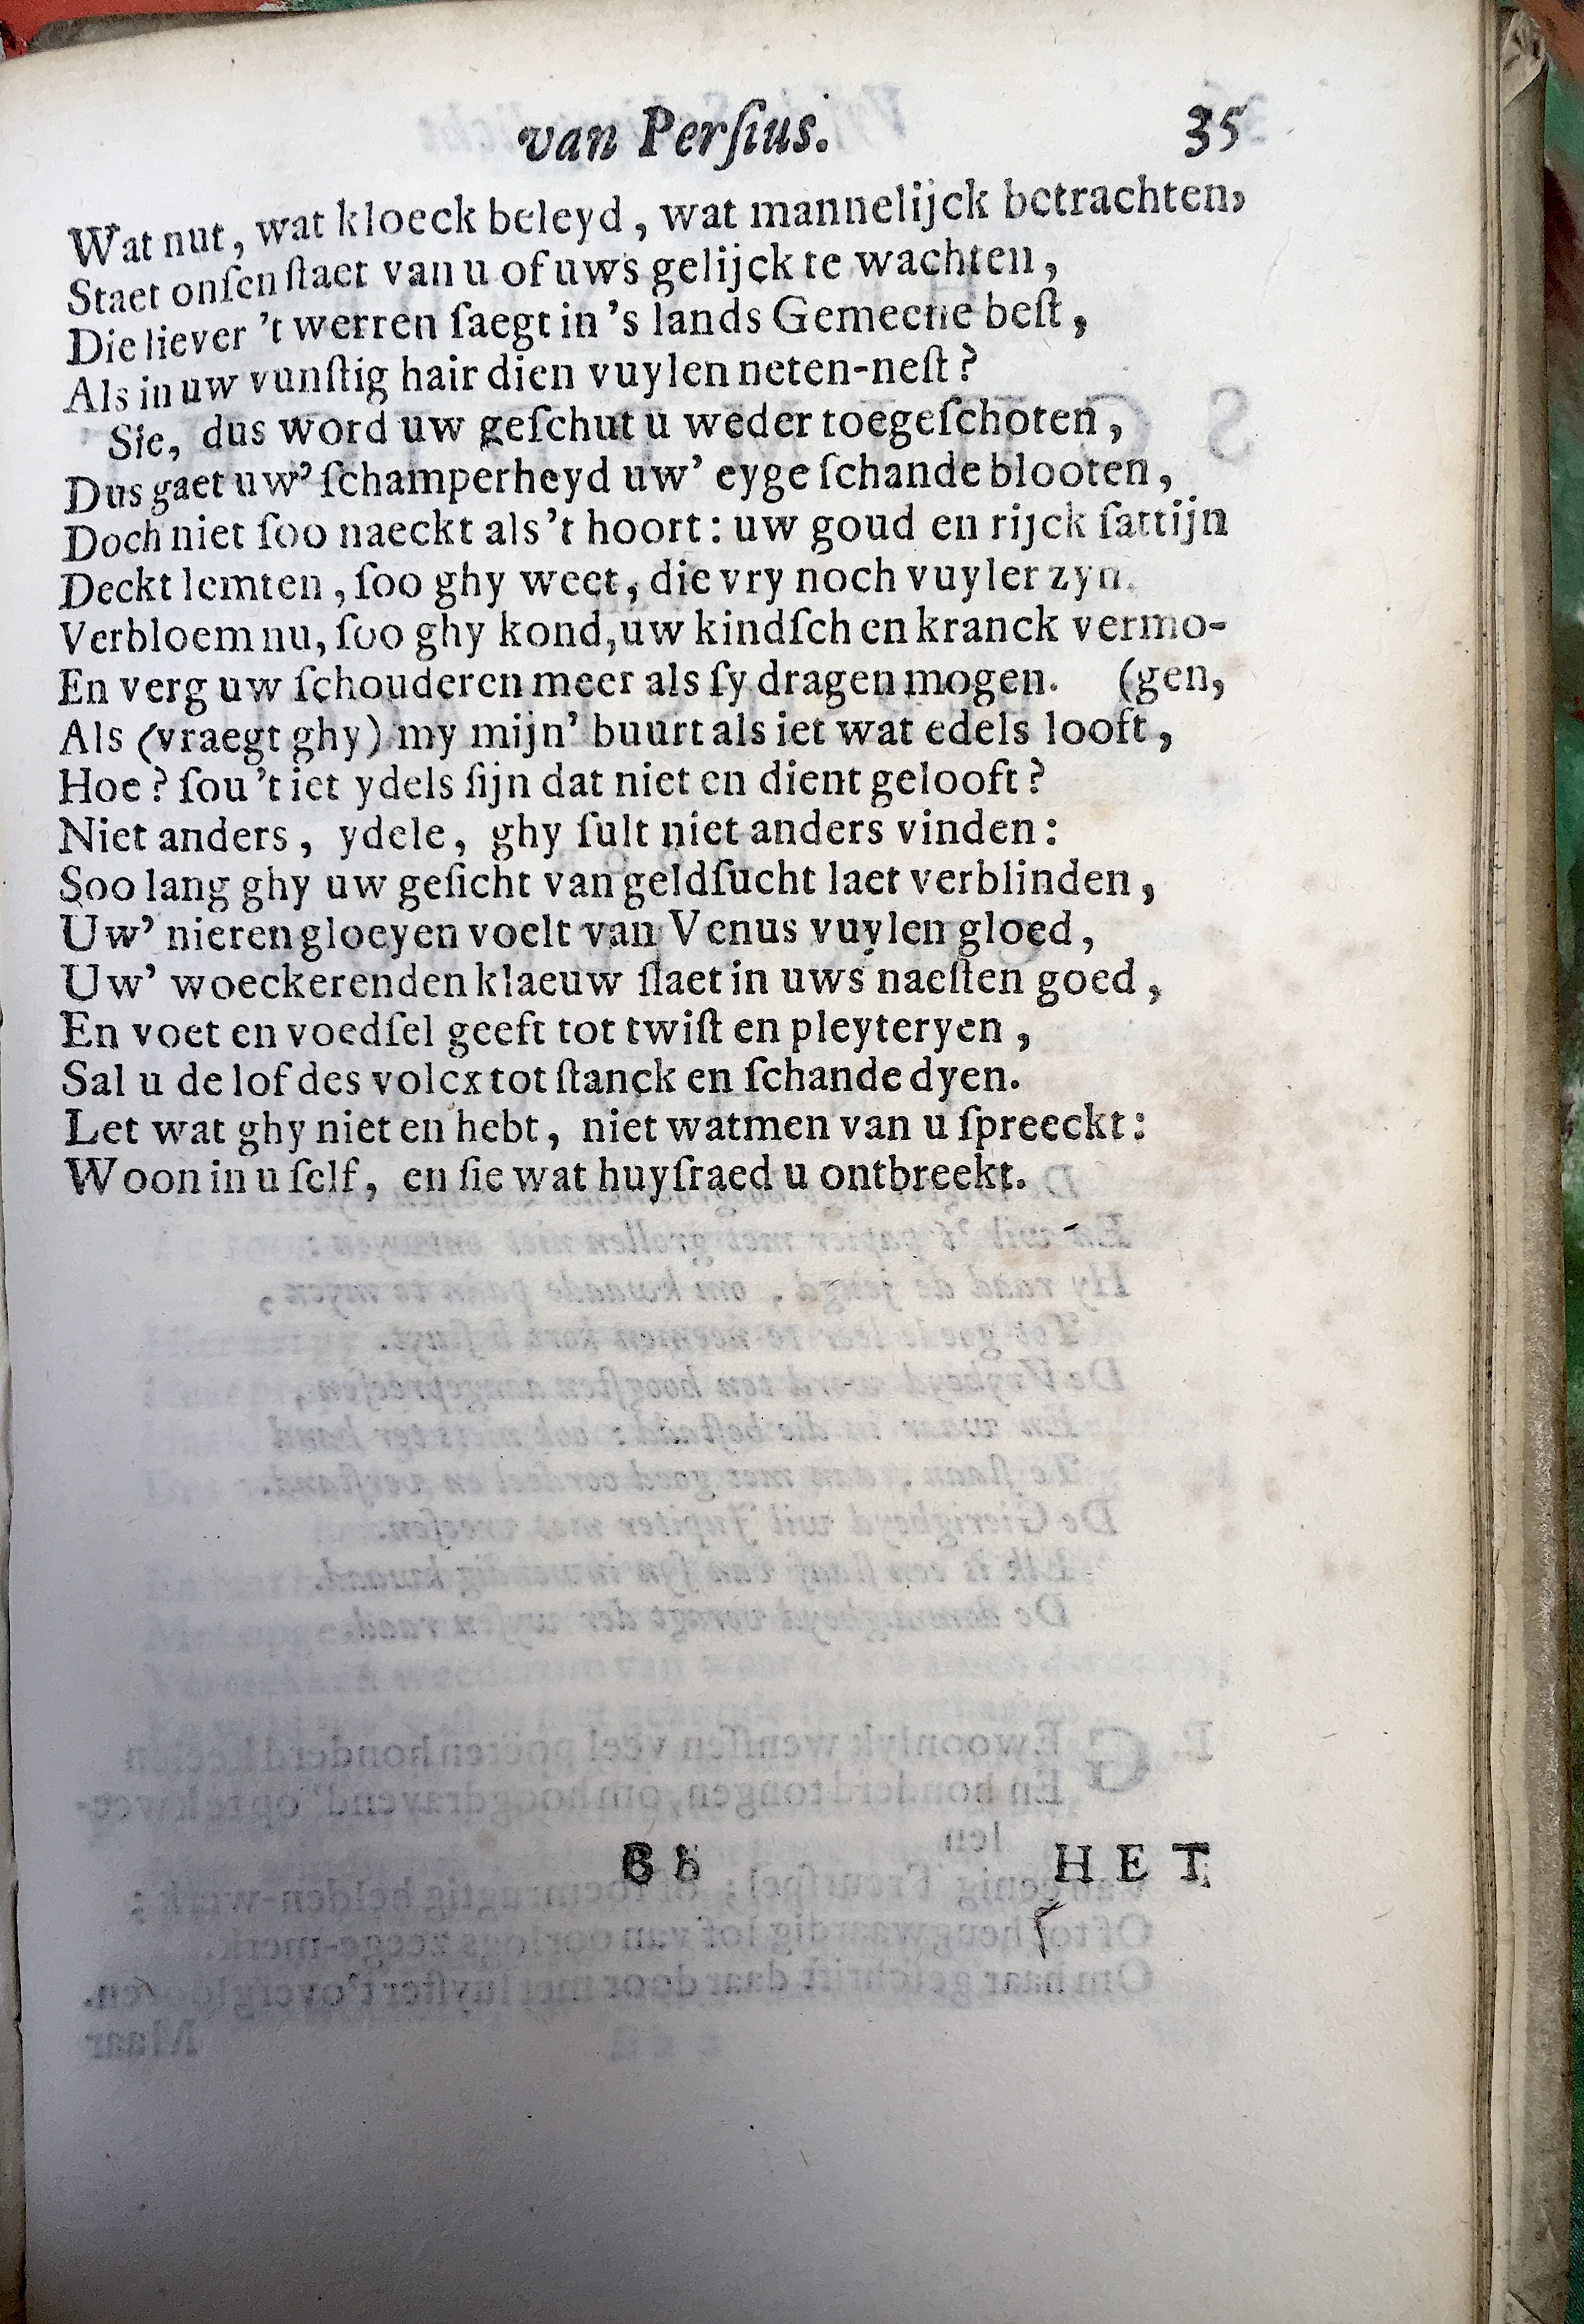 van Perſius. 35
Wat nut, wat kloeck beleyd, wat mannelijck betrachten,
Staet onſen ſtaet van u of uws gelijck te wachten,
Die liever 't werren ſaegt in 's lands Gemeene beſt,
Als in uw vunſtig hair dien vuylen neten-neſt?
Sie, dus word uw geſchut u weder toegeſchoten,
Dus gaet uw' ſchamperheyd uw' eyge ſchande blooten,
Doch niet ſoo naeckt als 't hoort: uw goud en rijck ſattijn
Deckt lemten, ſoo ghy weet, die vry noch vuyler zyn.
Verbloem nu, ſoo ghy kond, uw kindſch en kranck vermo-
En verg uw ſchouderen meer als ſy dragen mogen. (gen,
Als (vraegt ghy) my mijn' buurt als iet wat edels looft,
Hoe? ſou 't iet ydels ſijn dat niet en dient gelooft?
Niet anders, ydele, ghy ſult niet anders vinden:
Soo lang ghy uw geſicht van geldſucht laet verblinden,
Uw' nieren gloeyen voelt van Venus vuylen gloed,
Uw' woeckerenden klaeuw ſlaet in uws naeſten goed,
En voet en voedſel geeft tot twiſt en pleyteryen,
Sal u de lof des volcx tot ſtanck en ſchande dyen.
Let wat ghy niet en hebt, niet watmen van u ſpreeckt:
Woon in u ſelf, en ſie wat huyſraed u ontbreekt.
HET